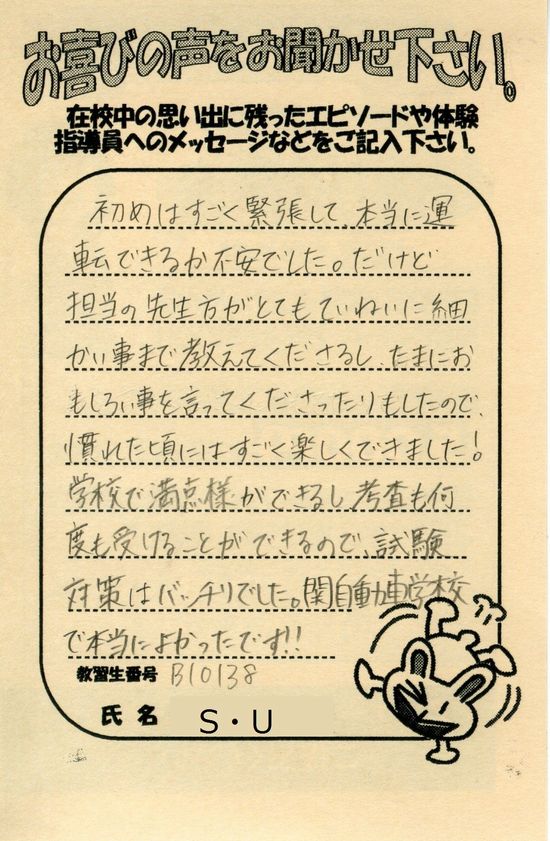 お喜びの声をお聞かせ下さい。
在校中の思い出に残ったエピソードや体験
指導員へのメッセージなどをご記入下さい。
初めはすごく緊張して、本当に運
転できるか不安でした。だけど
担当の先生方が、とてもていねいに細
かい事まで教えてくださるし、たまにお
もしろい事を言ってくださったりもしたので、
慣れた頃にはすごく楽しくできました!
学校で満点様ができるし、考査も何
度も受けることができるので、試験
対策はバッチリでした。関自動車学校
で本当によかったです!!
教習生番号 B10138
氏名 S・U